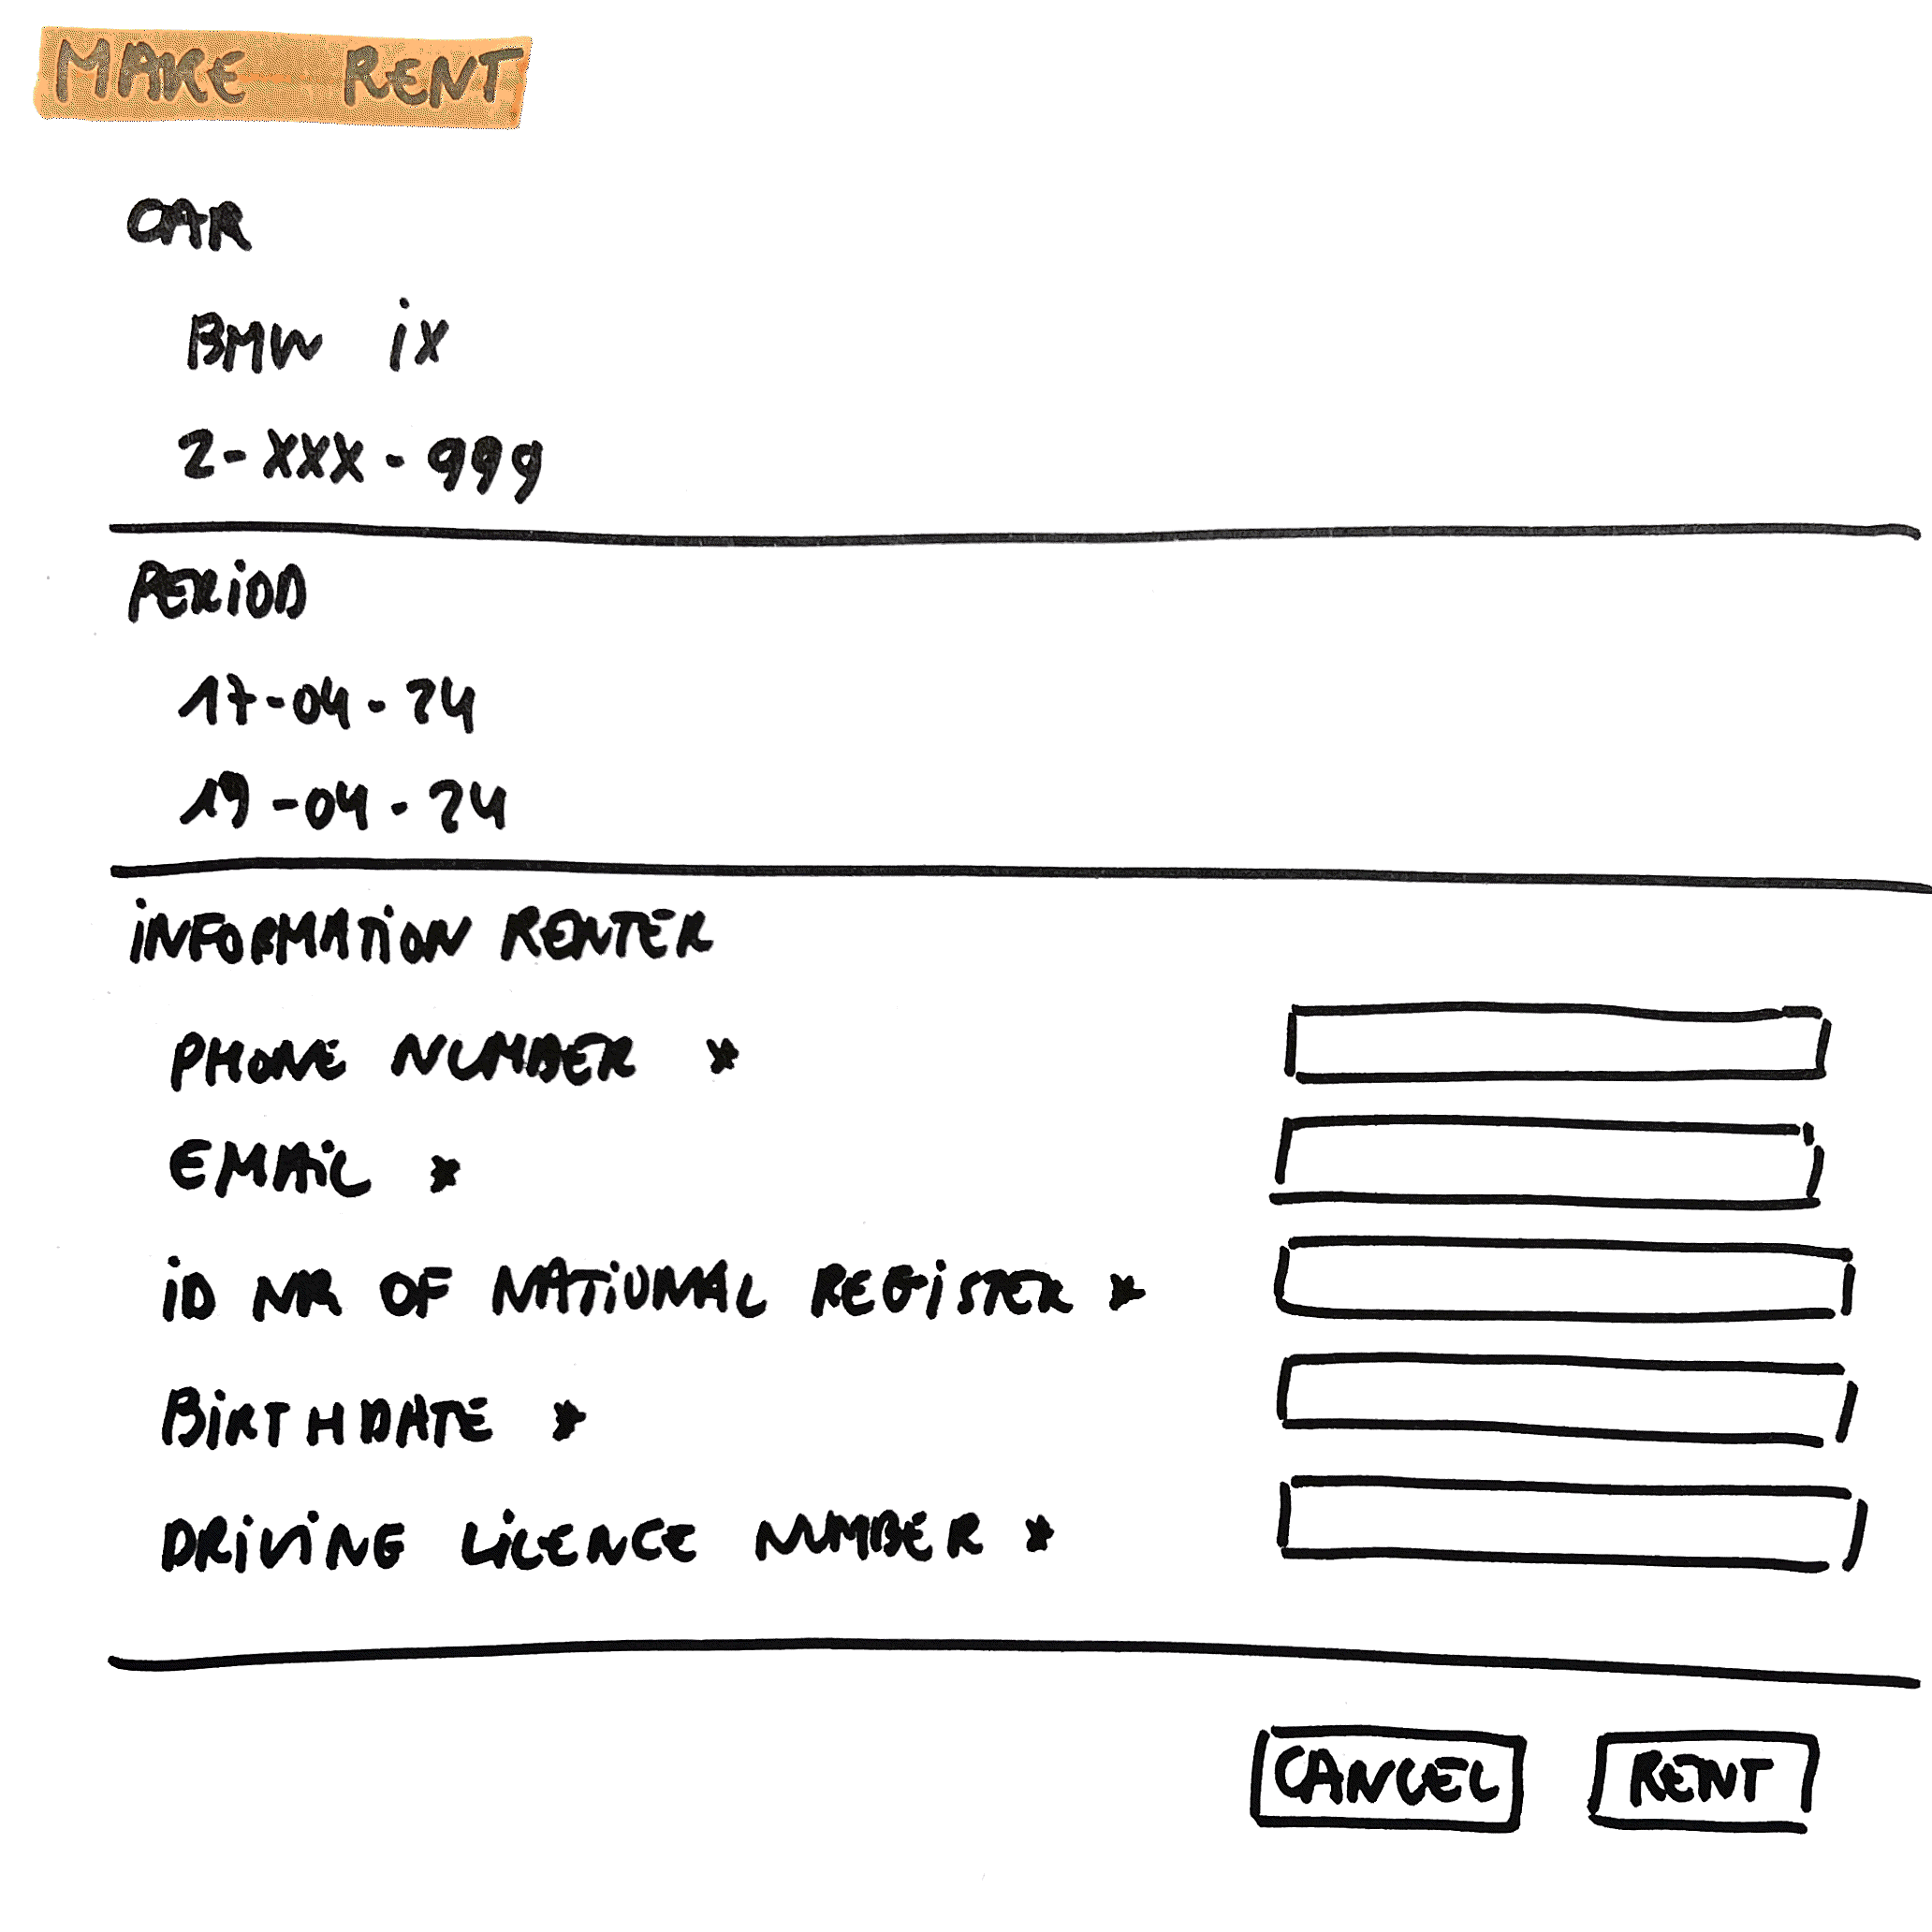 MAKE RENT
CAR
BMW iX
2-XXX-999
PERIOD
17-04-24
19-04-24
INFORMATION RENTER
PHONE NUMBER *
EMAIL *
ID NR OF NATIONAL REGISTER *
BIRTHDATE *
DRIVING LICENCE NUMBER *
CANCEL RENT